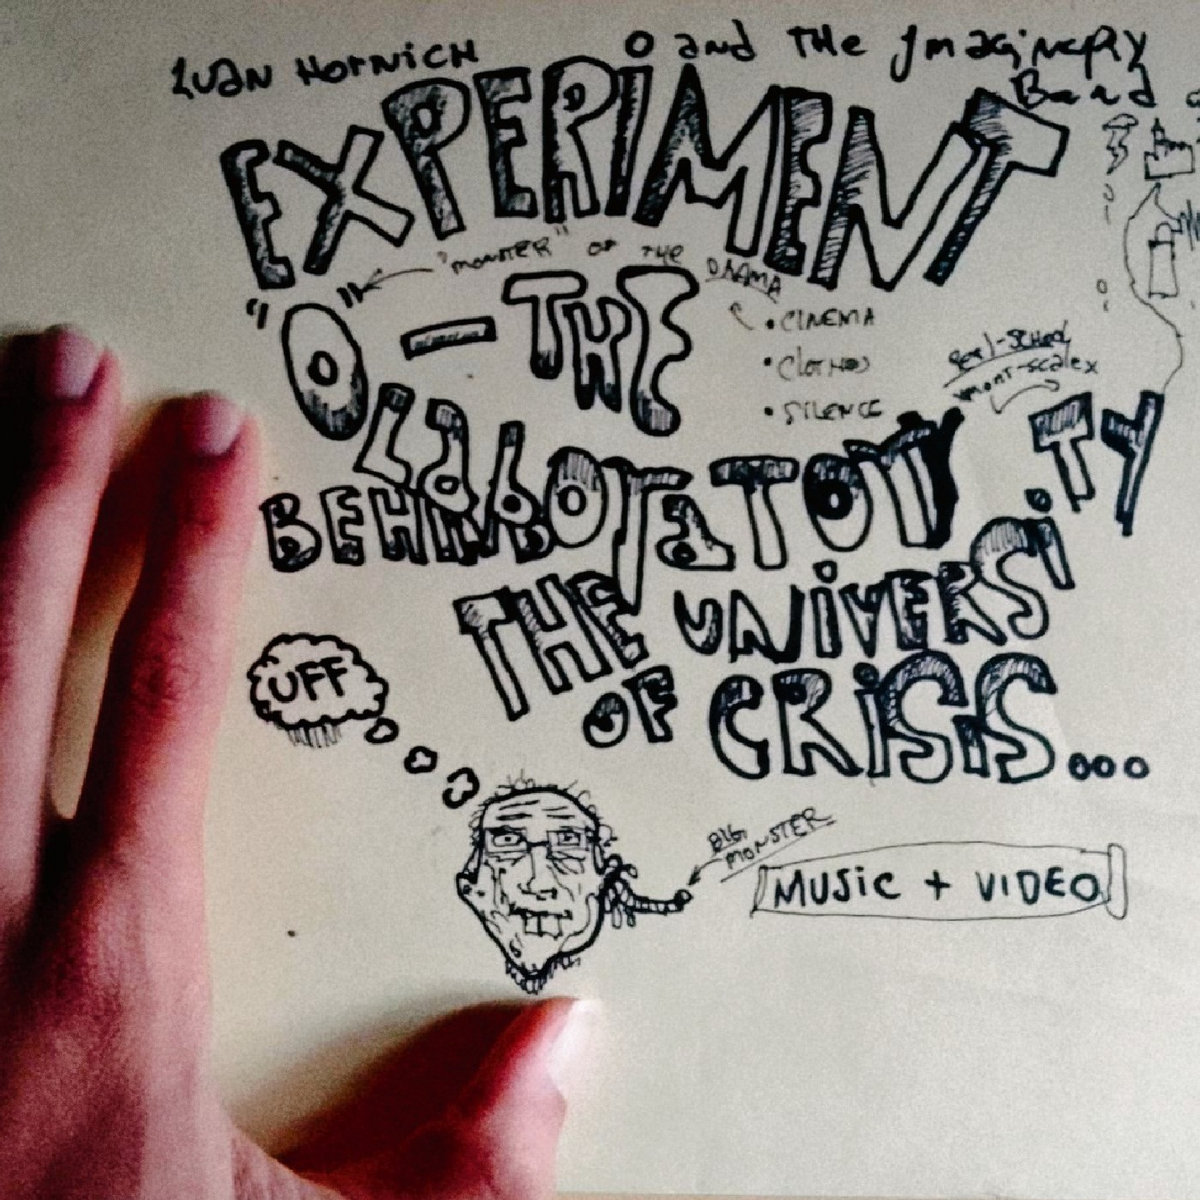 IVAN HORNICH
and THE Imaginery
Band
EXPERIMENT
"MONSTER" OF THE DRAMA
"O" — THE
• CINEMA
• CLOTHES
• SILENCE
LaboraTory
BEHIND
THE UNIVERSiTY
OF CRiSiS...
UFF
BIG
MONSTER
MUSiC + VIDEO